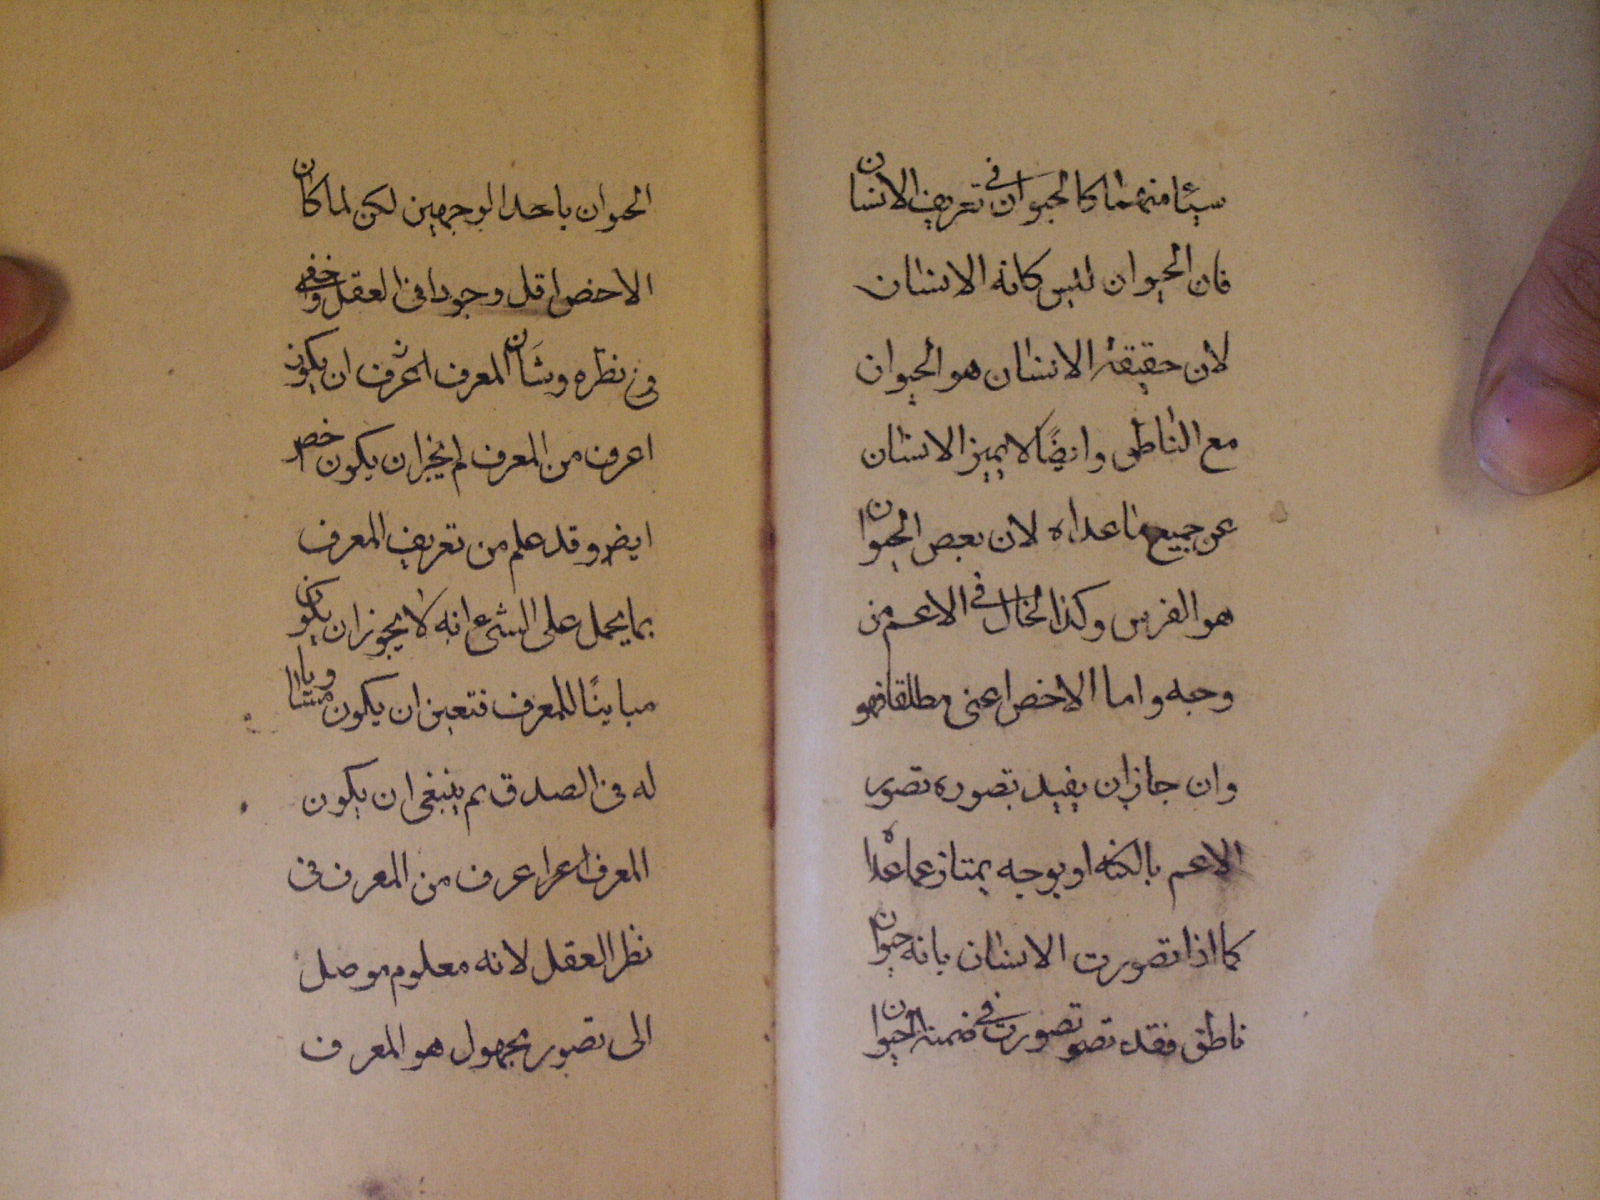 سيئا منهما كالحيوان في تعريف الانسان
فان الحيوان ليس كانه الانسان
لان حقيقة الانسان هو الحيوان
مع الناطق وايضًا لا يميز الانسان
عن جميع ما عداه لان بعض الحيوان
هو الفرس وكذا الحال في الاعم من
وجه واما الاخص اعنى مطلقا فهو
وان جاز ان يفيد تصوره تصور
الاعم بالكنه او بوجه يمتاز عما عداه
كما اذا تصورت الانسان بانه حيوان
ناطق فقد تصو تصورت في ضمنه الحيوان
الحيوان باحد الوجهين لكن لما كان
الاخص اقل وجودا فى العقل واخفى
فى نظره وشَان المعرف ان يكون
اعرف من المعرف لم يجز ان يكون اخص
ايض وقد علم من تعريف المعرف
بما يحمل على الشىء انه لا يجوز ان يكون
مباينًا للمعرف فتعين ان يكون مساويا
له فى الصدق ثم ينبغى ان يكون
المعرف اعرف من المعرف فى
نظر العقل لانه معلوم موصل
الى تصور مجهول هو المعرف